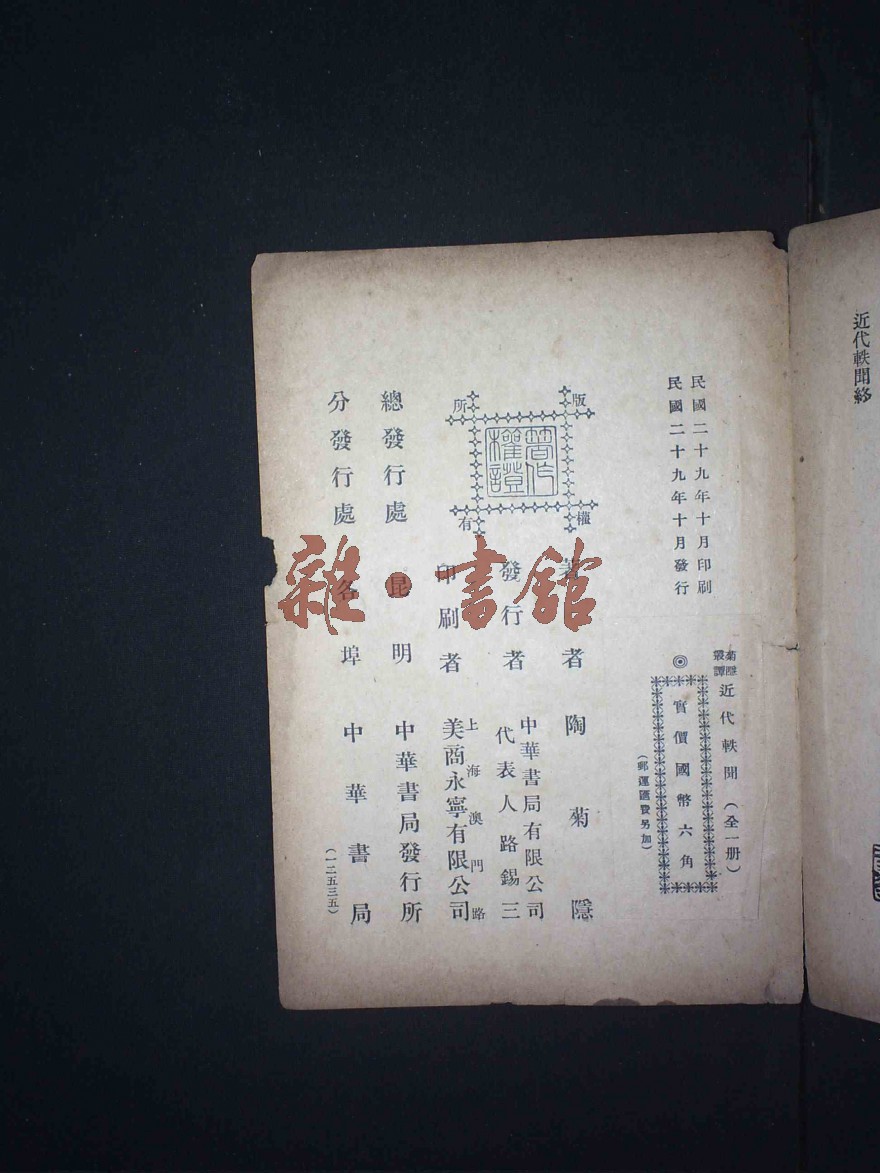 近代軼聞終
民國二十九年十月印刷
民國二十九年十月發行
菊隱
叢譚
近代軼聞(全一册)
◎
實價國幣六角
(郵運匯費另加)
版權所有
著作權證
著者 陶菊隱
發行者
中華書局有限公司
代表人路錫三
印刷者
上海澳門路
美商永寧有限公司
總發行處 昆明 中華書局發行所
分發行處 各埠 中華書局
(一二五三五)
雜·書館